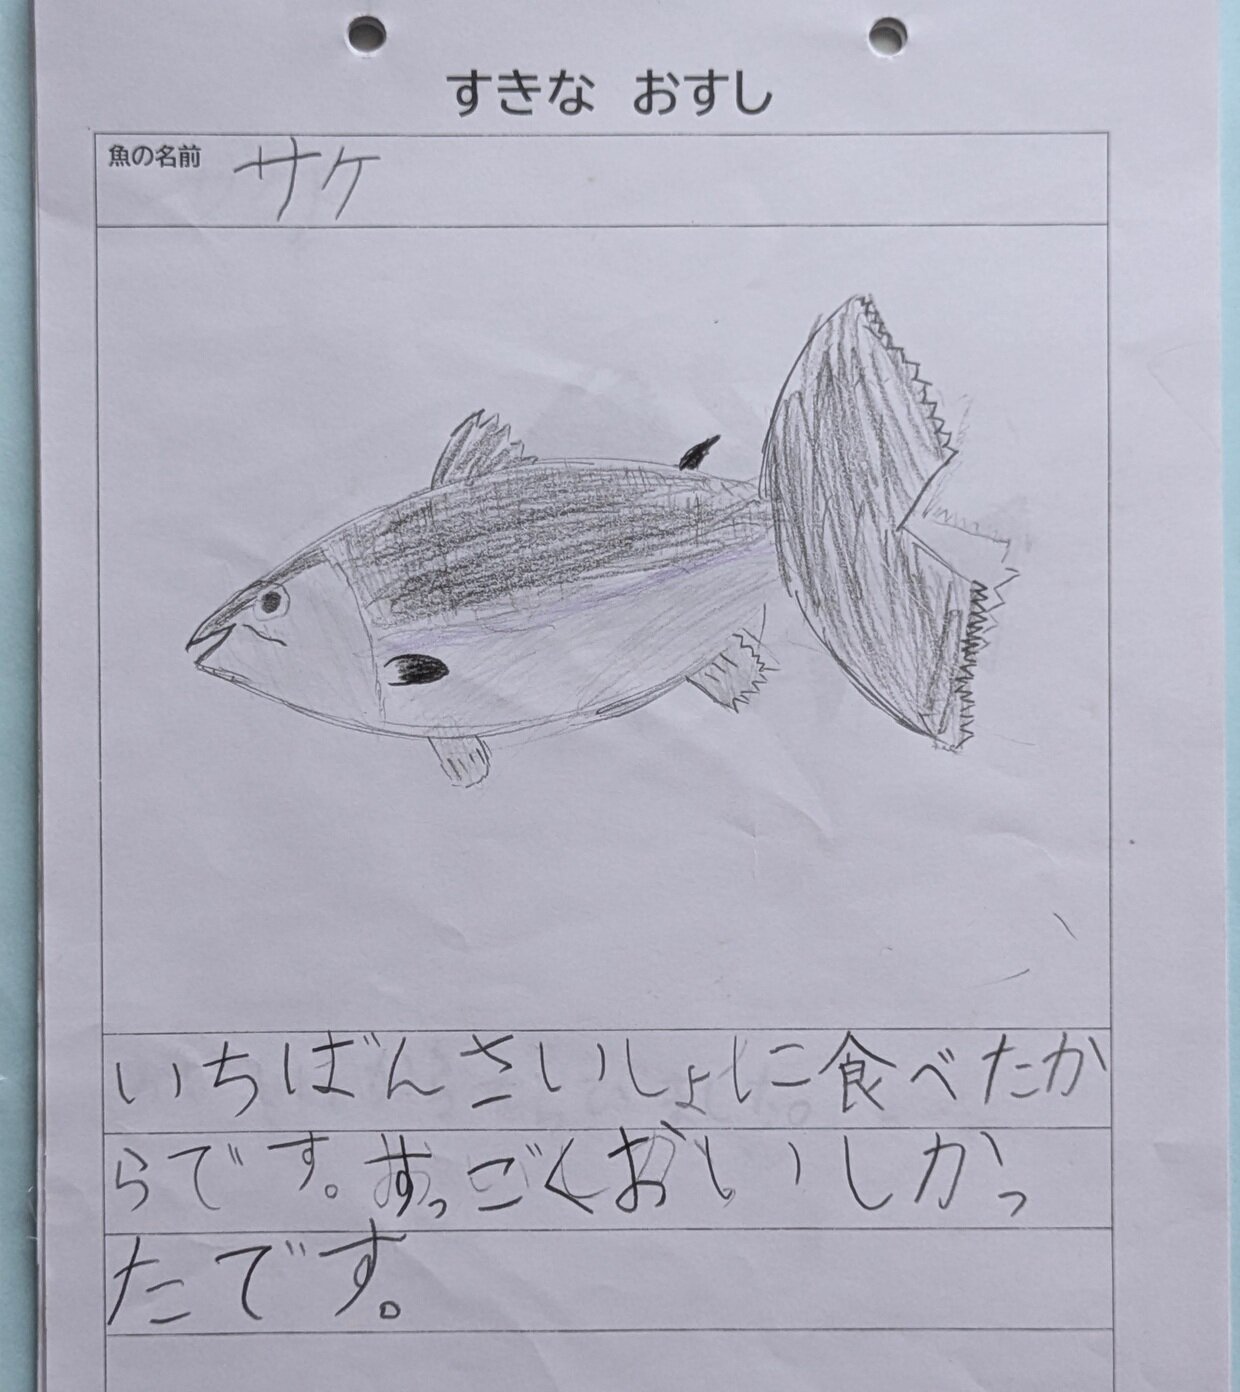 すきな おすし
魚の名前 サケ
いちばんさいしょに食べたか
らです。すっごくおいしかっ
たです。